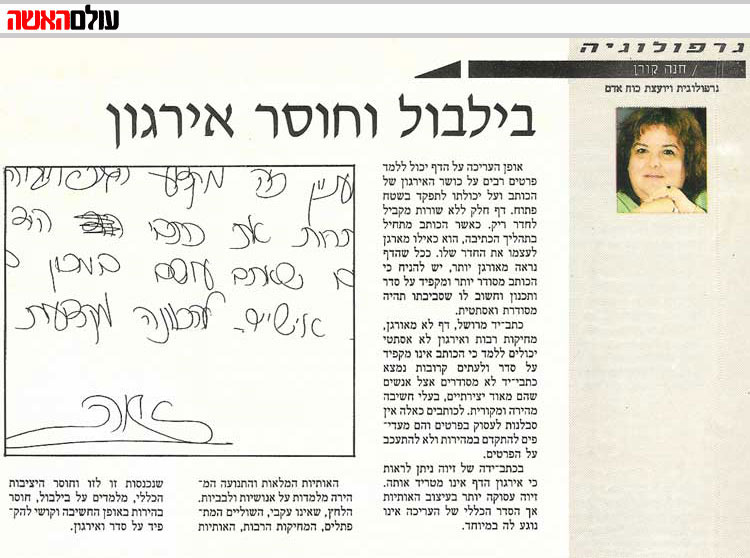 עולם האשה
גרפולוגיה
חנה קורן /
גרפולוגית ויועצת כוח אדם
בילבול וחוסר אירגון
אופן העריכה על הדף יכול ללמד
פרטים רבים על כושר האירגון של
הכותב ועל יכולתו לתפקד בשטח
פתוח. דף חלק ללא שורות מקביל
לחדר ריק. כאשר הכותב מתחיל
בתהליך הכתיבה, הוא כאילו מארגן
לעצמו את החדר שלו. ככל שהדף
נראה מאורגן יותר, יש להניח כי
הכותב מסודר יותר ומקפיד על סדר
ותכנון וחשוב לו שסביבתו תהיה
מסודרת ואסתטית.
כתב־יד מרושל, דף לא מאורגן,
מחיקות רבות ואירגון לא אסתטי
יכולים ללמד כי הכותב אינו מקפיד
על סדר ולעתים קרובות נמצא
כתבי־יד לא מסודרים אצל אנשים
שהם מאוד יצירתיים, בעלי חשיבה
מהירה ומקורית. לכותבים כאלה אין
סבלנות לעסוק בפרטים והם מעדי־
פים להתקדם במהירות ולא להתעכב
על הפרטים.
בכתב־ידה של זיוה ניתן לראות
כי אירגון הדף אינו מטריד אותה.
זיוה עסוקה יותר בעיצוב האותיות
אך הסדר הכללי של העריכה אינו
נוגע לה במיוחד.
האותיות המלאות והתנועה המ־
הירה מלמדות על אנושיות ולבביות.
הלחץ, שאינו עקבי, השוליים המת־
פתלים, המחיקות הרבות, האותיות
שנכנסות זו לזו וחוסר היציבות
הכללי, מלמדים על בילבול, חוסר
בהירות באופן החשיבה וקושי להק־
פיד על סדר ואירגון.
עניין מה מקצוע
את כתבי הוא
שאתם עושים במכון
אישיים. להכוונה מקצועית